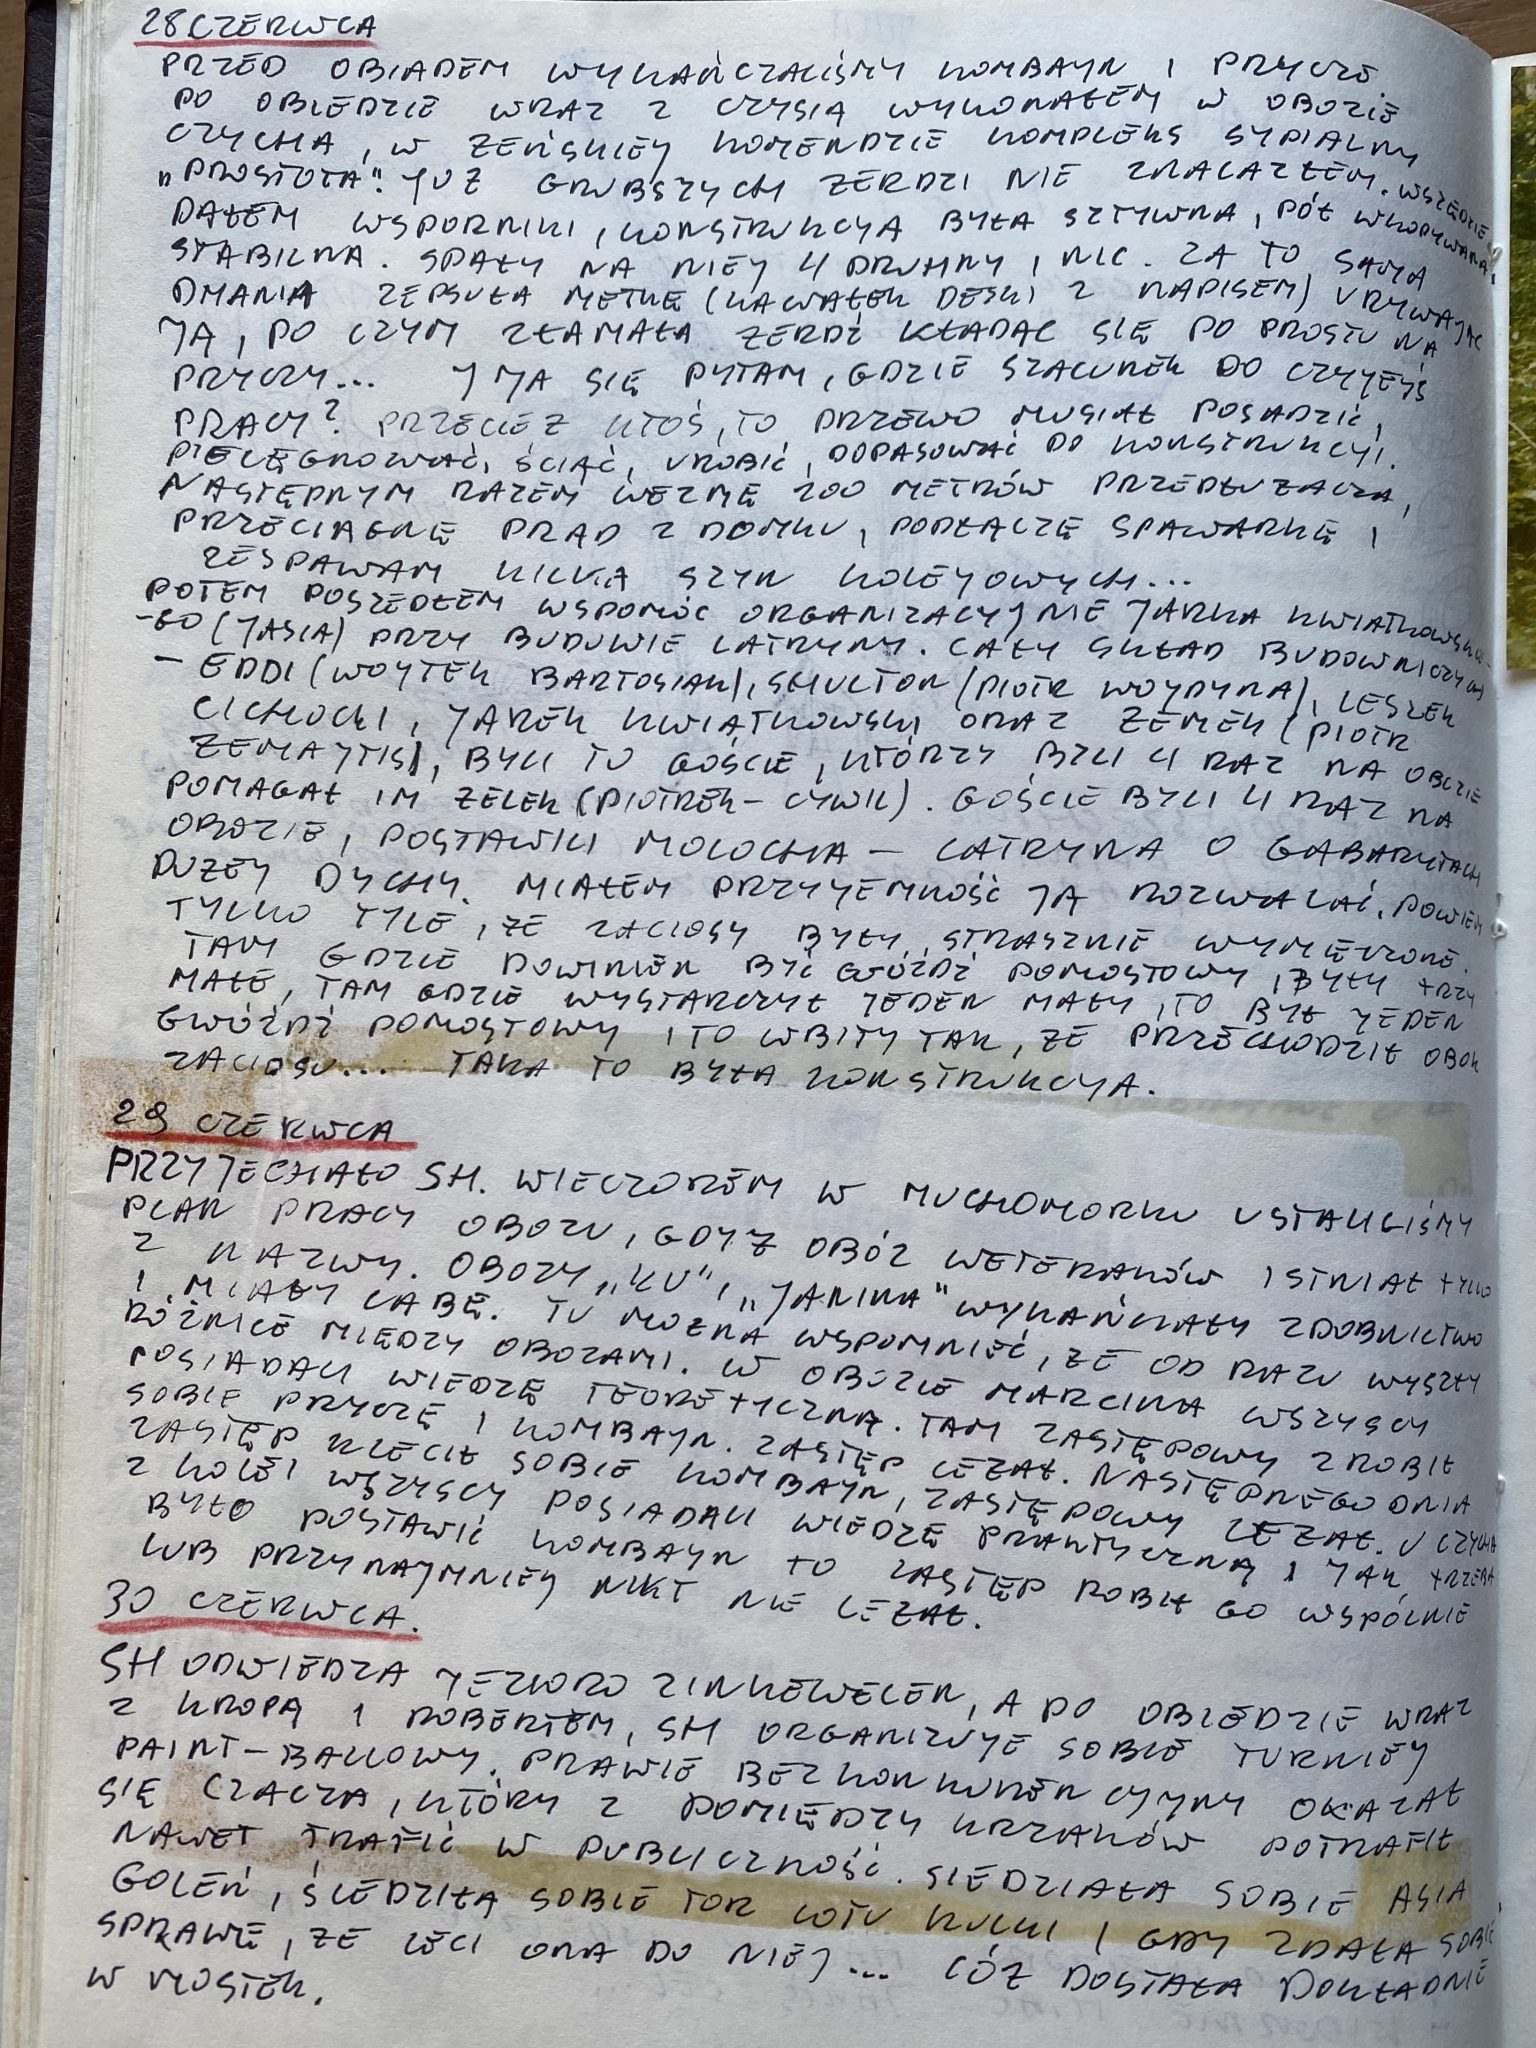 28 CZERWCA
PRZED OBIADEM WYKAŃCZALIŚMY KOMBAYN I PRYCZE
PO OBIEDZIE WRAZ Z CZYSIĄ WYKONAŁEM W OBOZIE
CZYCHA, W ŻEŃSKIEY KOMENDZIE KOMPLEKS SYPIALNY
"PROSTOTA". YUŻ GRUBSZYCH ŻERDZI NIE ZNALAZŁEM. WSZĘDZIE
DAŁEM WSPORNIKI, KONSTRUKCYA BYŁA SZTYWNA, PÓŁ WKOPYWANA,
STABILNA. SPAŁY NA NIEY 4 DRUHNY I NIC. ZA TO SAMA
DMANIA ZEPSUŁA METKĘ (KAWAŁEK DESKI Z NAPISEM) URYWAJĄC
YĄ, PO CZYM ZŁAMAŁA ŻERDŹ KŁADĄC SIĘ PO PROSTU NA
PRYCZY... Y YA SIĘ PYTAM, GDZIE SZACUNEK DO CZYYEYŚ
PRACY? PRZECIEŻ KTOŚ, TO DRZEWO MUSIAŁ POSADZIĆ,
PIELĘGNOWAĆ, ŚCIĄĆ, UROBIĆ, DOPASOWAĆ DO KONSTRUKCYI.
NASTĘPNYM RAZEM WEZMĘ 200 METRÓW PRZEDŁUŻACZA,
PRZECIĄGNĘ PRĄD Z DOMKU, PODŁĄCZĘ SPAWARKĘ I
ZESPAWAM KILKA SZYN KOLEYOWYCH...
POTEM POSZEDŁEM WSPOMÓC ORGANIZACYJNIE JARKA KWIATKOWSKIE-
-GO (YASIA) PRZY BUDOWIE LATRYNY. CAŁY SKŁAD BUDOWNICZYCH
- EDDI (WOYTEK BARTOSIAK), SHULTON (PIOTR WOYDYNA), LESZEK
CICHOCKI, YAREK KWIATKOWSKI ORAZ ZEMEK (PIOTR
ZEMAYTIS), BYLI TO GOŚCIE, KTÓRZY BYLI 4 RAZ NA OBOZIE
POMAGAŁ IM ZELEK (PIOTREK - CYWIL). GOŚCIE BYLI 4 RAZ NA
OBOZIE, POSTAWILI MOLOCHA - LATRYNA O GABARYTACH
DUŻEY DYCHY. MIAŁEM PRZYYEMNOŚĆ YĄ ROZWALAĆ. POWIEM
TYLKO TYLE, ŻE ZACIOSY BYŁY STRASZNIE WYMIĘTOLONE.
TAM GDZIE POWINIEN BYĆ GWÓŹDŹ POMOSTOWY, BYŁY TRZY
MAŁE, TAM GDZIE WYSTARCZYŁ YEDEN MAŁY, TO BYŁ YEDEN
GWÓŹDŹ POMOSTOWY I TO WBITY TAK, ŻE PRZECHODZIŁ OBOK
ZACIOSU... TAKA TO BYŁA KONSTRUKCYA.
29 CZERWCA
PRZYJECHAŁO SH. WIECZOREM W MUCHOMORKU USTALILIŚMY
PLAN PRACY OBOZU, GDYŻ OBÓZ WETERANÓW ISTNIAŁ TYLKO
Z NAZWY. OBOZY "KU", "YANINA" WYKAŃCZAŁY ZDOBNICTWO
I MIAŁY LABĘ. TU MOŻNA WSPOMNIEĆ, ŻE OD RAZU WYSZŁY
RÓŻNICE MIĘDZY OBOZAMI. W OBOZIE MARCINA WSZYSCY
POSIADALI WIEDZĘ TEORETYCZNĄ. TAM ZASTĘPOWY ZROBIŁ
SOBIE PRYCZĘ I KOMBAYN. ZASTĘP LEŻAŁ. NASTĘPNEGO DNIA
ZASTĘP KLECIŁ SOBIE KOMBAYN, ZASTĘPOWY LEŻAŁ. U CZYCHA
Z KOLEI WSZYSCY POSIADALI WIEDZĘ PRAKTYCZNĄ I YAK TRZEBA
BYŁO POSTAWIĆ KOMBAYN TO ZASTĘP ROBIŁ GO WSPÓLNIE
LUB PRZYNAJMNIEJ NIKT NIE LEŻAŁ.
30 CZERWCA.
SH ODWIEDZA YEZIORO ZINKEWELEN, A PO OBIEDZIE WRAZ
Z KROPĄ I ROBERTEM, SH ORGANIZUYE SOBIE TURNIEY
PAINT-BALLOWY. PRAWIE BEZKONKURENCYYNY OKAZAŁ
SIĘ CZACZA, KTÓRY Z POMIĘDZY KRZAKÓW POTRAFIŁ
NAWET TRAFIĆ W PUBLICZNOŚĆ. SIEDZIAŁA SOBIE ASIA
GOLEŃ, ŚLEDZIŁA SOBIE TOR LOTU KULKI I GDY ZDAŁA SOBIE
SPRAWĘ, ŻE LECI ONA DO NIEJ... CÓŻ DOSTAŁA DOKŁADNIE
W MOSTEK.